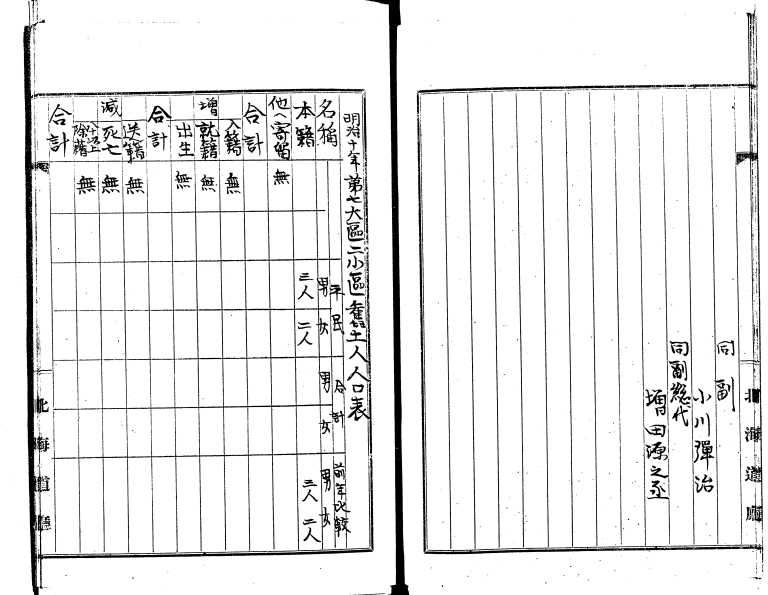 同副
小川彈治
同副総代
増田源之丞
北海道廳
明治十年第七大區二小區舊土人人口表
名稱 平民 男 女 合計 男 女 前年比較 男 女
本籍 三人 二人 三人 二人
他ヘ寄留 無
合計
増 入籍 無
就籍 無
出生 無
合計
減 送籍 無
死亡 無
除籍 無
合計
北海道廳